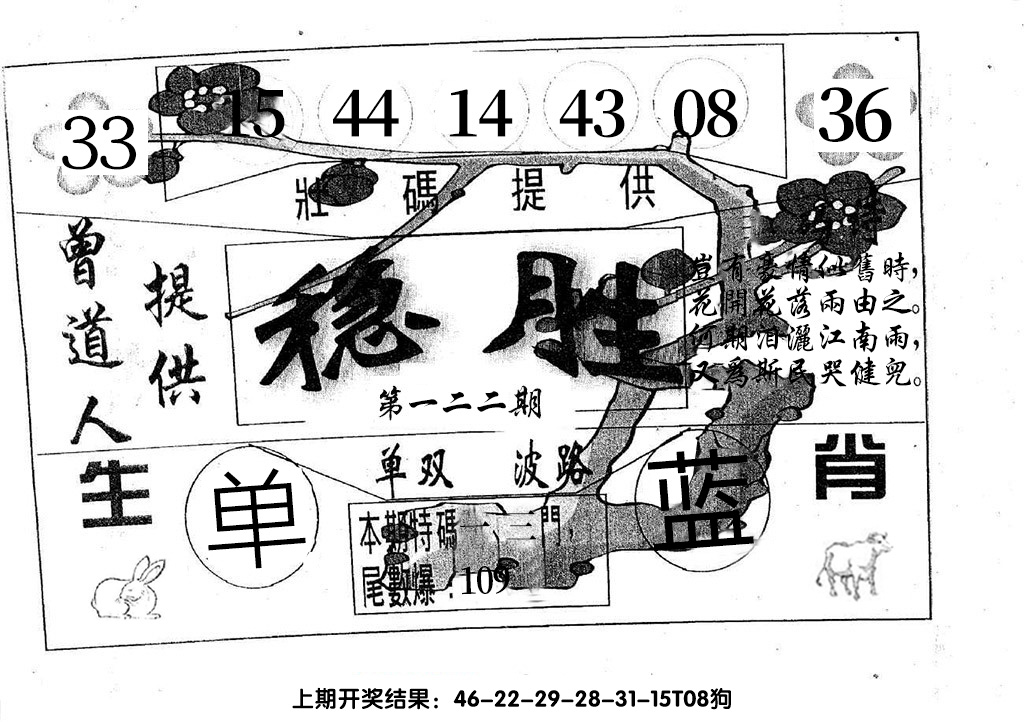 33 15 44 14 43 08 36
壯碼提供
曾道人
提供
稳胜
第一二二期
豈有豪情似舊時，
花開花落兩由之。
何期泪灑江南雨，
又為斯民哭健兒。
单双 波路
生 单 蓝 肖
本期特碼一、三門，
尾數爆：109
上期开奖结果：46-22-29-28-31-15T08狗